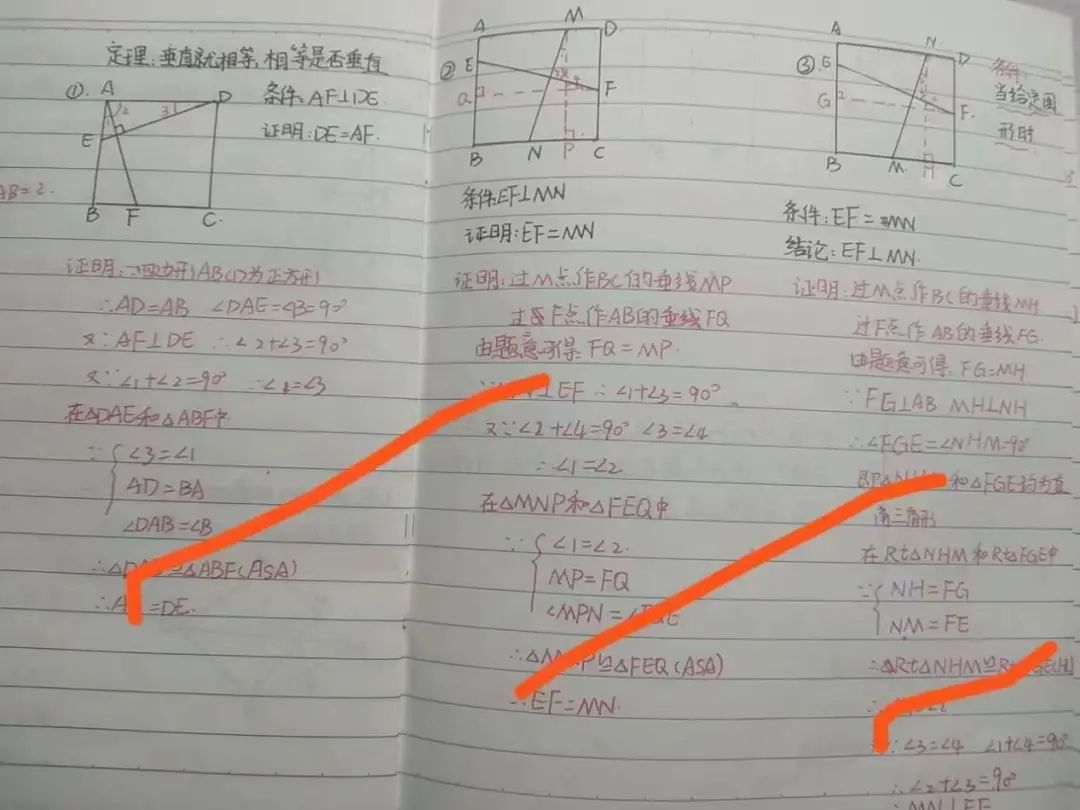 定理:垂直就相等,相等是否垂直
①.
A
D
E
B
F
C.
2
3
条件:AF⊥DE
证明:DE=AF.
AB=2.
证明:∵四边形ABCD为正方形
∴AD=AB ∠DAE=∠B=90°
又∵AF⊥DE ∴∠2+∠3=90°
又∵∠1+∠2=90° ∴∠1=∠3
在△DAE和△ABF中
∵ ∠3=∠1
AD=BA
∠DAB=∠B
≌△ABF(ASA)
=DE.
②
A
M
D
E
Q
F
B
N
P
C
条件:EF⊥MN
证明:EF=MN
证明:过M点作BC的垂线MP
过F点作AB的垂线FQ
由题意可得:FQ=MP.
⊥EF ∴∠1+∠3=90°
又∵∠2+∠4=90° ∠3=∠4
∴∠1=∠2
在△MNP和△FEQ中
∵ ∠1=∠2.
MP=FQ
∠MPN=
≌△FEQ(ASA)
∴EF=MN.
③.
A
N
D
E
G
F.
B
M
H
C
条件:
当给定图
形时
条件:EF=MN
结论:EF⊥MN.
证明:过M点作BC的垂线MH
过F点作AB的垂线FG.
由题意可得:FG=MH
∵FG⊥AB MH⊥NH
∴∠FGE=∠NHM=90°
和△FGE均为直
角三角形
在Rt△NHM和Rt△FGE中
∵ NH=FG
NM=FE
∴△Rt△NHM≌
∵∠3=∠4 ∠1+∠4=90°
∴∠2+∠3=90°
∴MN⊥EF